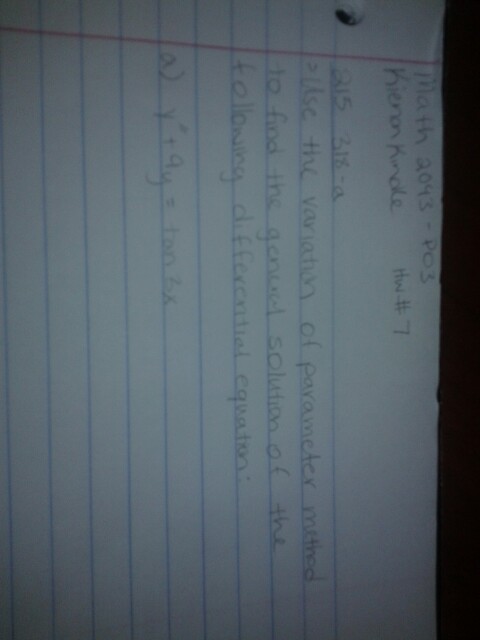 Math 2043 - P03
Kieron Kindle HW# 7
215 318-a
> Use the variation of parameter method
to find the general solution of the
following differential equation:
a) y" + 9y = tan 3x